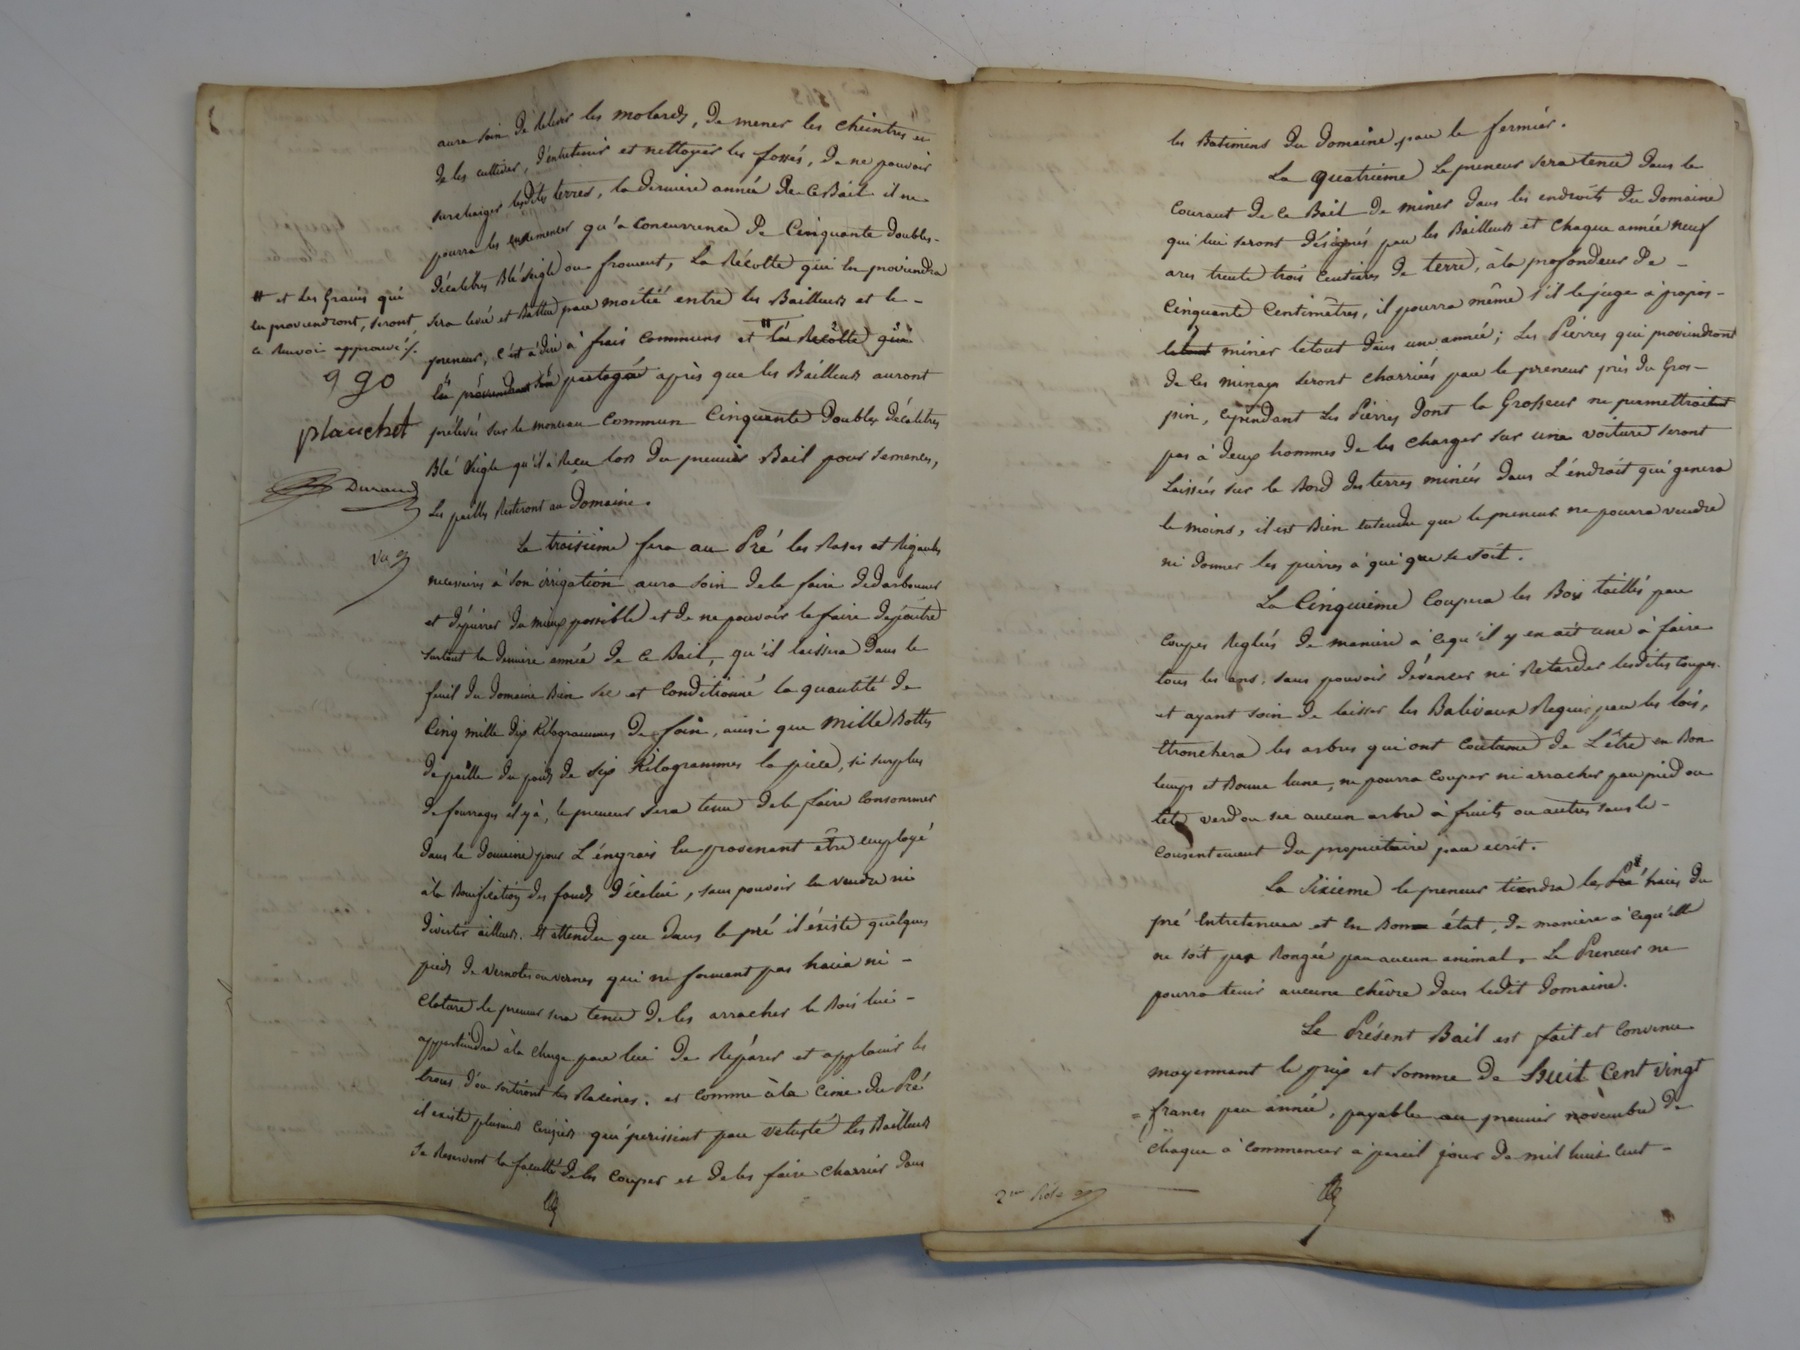 aura soin de relever les molards, de mener les cheintres et
de les cultiver, d'entretenir et nettoyer les fossés, de ne pouvoir
surcharger lesdites terres, la derniere année de ce Bail il ne
pourra les ensemencer qu'à concurrence de Cinquante doubles-
décalitres Blé Seigle ou froment, la Récolte qui en proviendra
sera levée et Battue par moitié entre les Bailleurs et le -
preneur, c'est à dire à frais communs et # la Récolte qui
en proviendront sera partagée après que les Bailleurs auront
prélevés sur le monceau commun Cinquante Doubles décalitres
Blé Seigle qu'il a Reçu lors du premier Bail pour semences,
les pailles Resteront au Domaine.
# et les Grains qui
en proviendront, seront
ce Renvoi approuvé /.
plauchet
Durand
La troisieme fera au Pré les Rases et Rigaules
necessaires à son irrigation aura soin de le faire dedarbonner
et dépierrer du mieux possible et de ne pouvoir le faire depaître
surtout la derniere année de ce Bail, qu'il laissera dans le
fenil du Domaine Bien sec et conditionné la quantité de
Cinq mille dix Kilogrammes de foin, ainsi que mille Bottes
de paille du poids de six Kilogrammes la piece, si surplus
de fourrages il y à, le preneur sera tenu de le faire consommer
dans le Domaine pour L'éngrais en provenant être employé
à la Bonification des fonds d'icelui, sans pouvoir en vendre ni
divertir ailleurs. Et attendu que dans le pré il éxiste quelques
pieds de vernotes ou vernes qui ne forment pas haie ni -
cloture le preneur sera tenu de les arracher le Bois lui -
appartiendra à la charge par lui de Réparer et applanir les
trous d'où sortiront les Racines. et comme à la Cime du Pré
il existe plusieurs Cerisiers qui périssent par vetusté les Bailleurs
se Reservent la faculté de les couper et de les faire charrier dans
les Batimens du Domaine par le fermier.
La quatrieme Le preneur sera tenu dans le
Courant de ce Bail de miner dans les endroits du Domaine
qui lui seront désignés par les Bailleurs et chaque année neuf
ares trente trois Centiares de terre, à la profondeur de -
Cinquante Centimètres, il pourra même s'il le juge à propos -
letout miner letout dans une année; Les Pierres qui proviendront
de les minages seront charriées par le preneur près du Gros -
pin, cependant les Pierres dont la Grosseur ne permettroient
pas à deux hommes de les charger sur une voiture seront
Laissées sur le Bord des terres minées dans L'éndroit qui genera
le moins, il est Bien entendu que le preneur ne pourra vendre
ni donner les pierres à qui que ce soit.
La Cinquieme Coupera les Bois taillés par
Coupes Reglées de maniere à ce qu'il y en ait une à faire
tous les ans, sans pouvoir dévancer ni Retarder lesdites coupes.
et ayant soin de laisser les Baliveaux Requis par les lois,
étronchera les arbres qui ont Coutume de L'être en Bon
temps et Bonne lune, ne pourra couper ni arracher par pied ou
tête verd ou sec aucun arbre à fruits ou autres sans le -
consentement du propriétaire par ecrit.
La Sixieme le preneur tiendra les Pré haies du
pré Entretenues et en Bonne état, de maniere à ce qu'elle
ne soit pas Rongée par aucun animal. Le Preneur ne
pourra tenir aucune chêvre dans ledit Domaine.
Le Présent Bail est fait et convenu
moyennant le prix et somme de Huit Cent vingt
= francs par année, payable au premier novembre de
chaque à commencer à pareil jour de mil huit cent -
2me Role